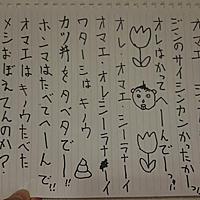 オマエ
ジンのサイシンカンかったかっ
オレはかってへーんでーっ!!
オレ・オマエ・シラナーイ
オマエ・オレシーラナーイ
ワターシはキノウ
カツ丼をタベタデー!!
ホンマはたべてへーんで!!
オマエはキノウたべた
メシおぼえてんのか?